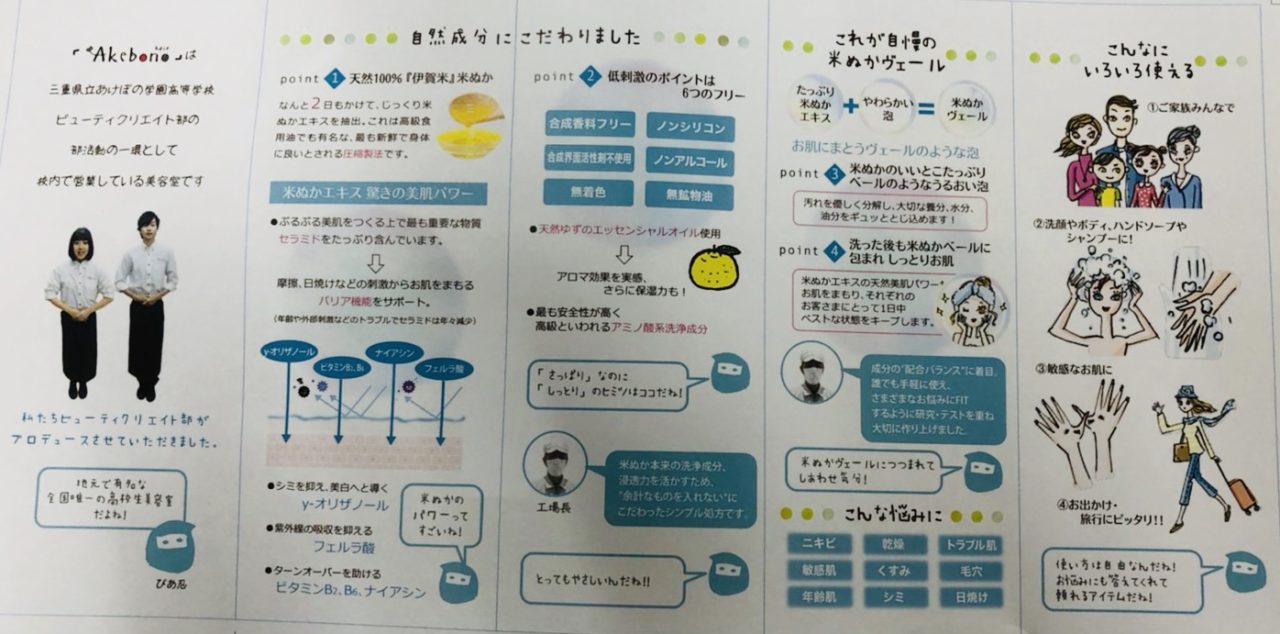 「Akebono」は
三重県立あけぼの学園高等学校
ビューティクリエイト部の
部活動の一環として
校内で営業している美容室です
私たちビューティクリエイト部が
プロデュースさせていただきました。
地元で有名な
全国唯一の高校生美容室
だよね!
ぴあ忍
自然成分にこだわりました
point 1 天然100%『伊賀米』米ぬか
なんと2日もかけて、じっくり米
ぬかエキスを抽出。これは高級食
用油でも有名な、最も新鮮で身体
に良いとされる圧縮製法です。
米ぬかエキス 驚きの美肌パワー
●ぷるぷる美肌をつくる上で最も重要な物質
セラミドをたっぷり含んでいます。
摩擦、日焼けなどの刺激からお肌をまもる
バリア機能をサポート。
(年齢や外部刺激などのトラブルでセラミドは年々減少)
γ-オリザノール
ビタミンB2、B6
ナイアシン
フェルラ酸
●シミを抑え、美白へと導く
γ-オリザノール
●紫外線の吸収を抑える
フェルラ酸
●ターンオーバーを助ける
ビタミンB2、B6、ナイアシン
米ぬかの
パワーって
すごいね!
point 2 低刺激のポイントは
6つのフリー
合成香料フリー
ノンシリコン
合成界面活性剤不使用
ノンアルコール
無着色
無鉱物油
●天然ゆずのエッセンシャルオイル使用
アロマ効果を実感、
さらに保湿力も!
●最も安全性が高く
高級といわれるアミノ酸系洗浄成分
「さっぱり」なのに
「しっとり」のヒミツはココだね!
工場長
米ぬか本来の洗浄成分、
浸透力を活かすため、
"余計なものを入れない"に
こだわったシンプル処方です。
とってもやさしいんだね!!
これが自慢の
米ぬかヴェール
たっぷり
米ぬか
エキス
+
やわらかい
泡
=
米ぬか
ヴェール
お肌にまとうヴェールのような泡
point 3 米ぬかのいいとこたっぷり
ベールのようなうるおい泡
汚れを優しく分解し、大切な養分、水分、
油分をギュッととじ込めます!
point 4 洗った後も米ぬかベールに
包まれ しっとりお肌
米ぬかエキスの天然美肌パワー
お肌をまもり、それぞれの
お客さまにとって1日中
ベストな状態をキープします。
成分の"配合バランス"に着目。
誰でも手軽に使え、
さまざまなお悩みにFIT
するように研究・テストを重ね
大切に作り上げました。
米ぬかヴェールにつつまれて
しあわせ気分!
こんな悩みに
ニキビ
乾燥
トラブル肌
敏感肌
くすみ
毛穴
年齢肌
シミ
日焼け
こんなに
いろいろ使える
①ご家族みんなで
②洗顔やボディ、ハンドソープや
シャンプーに!
③敏感なお肌に
④お出かけ・
旅行にピッタリ!!
使い方は自由なんだね!
お悩みにも答えてくれて
頼れるアイテムだね!